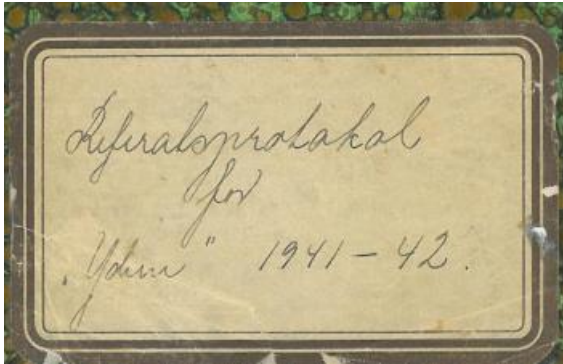 Referatsprotokol
for
„Ydun" 1941 – 42.